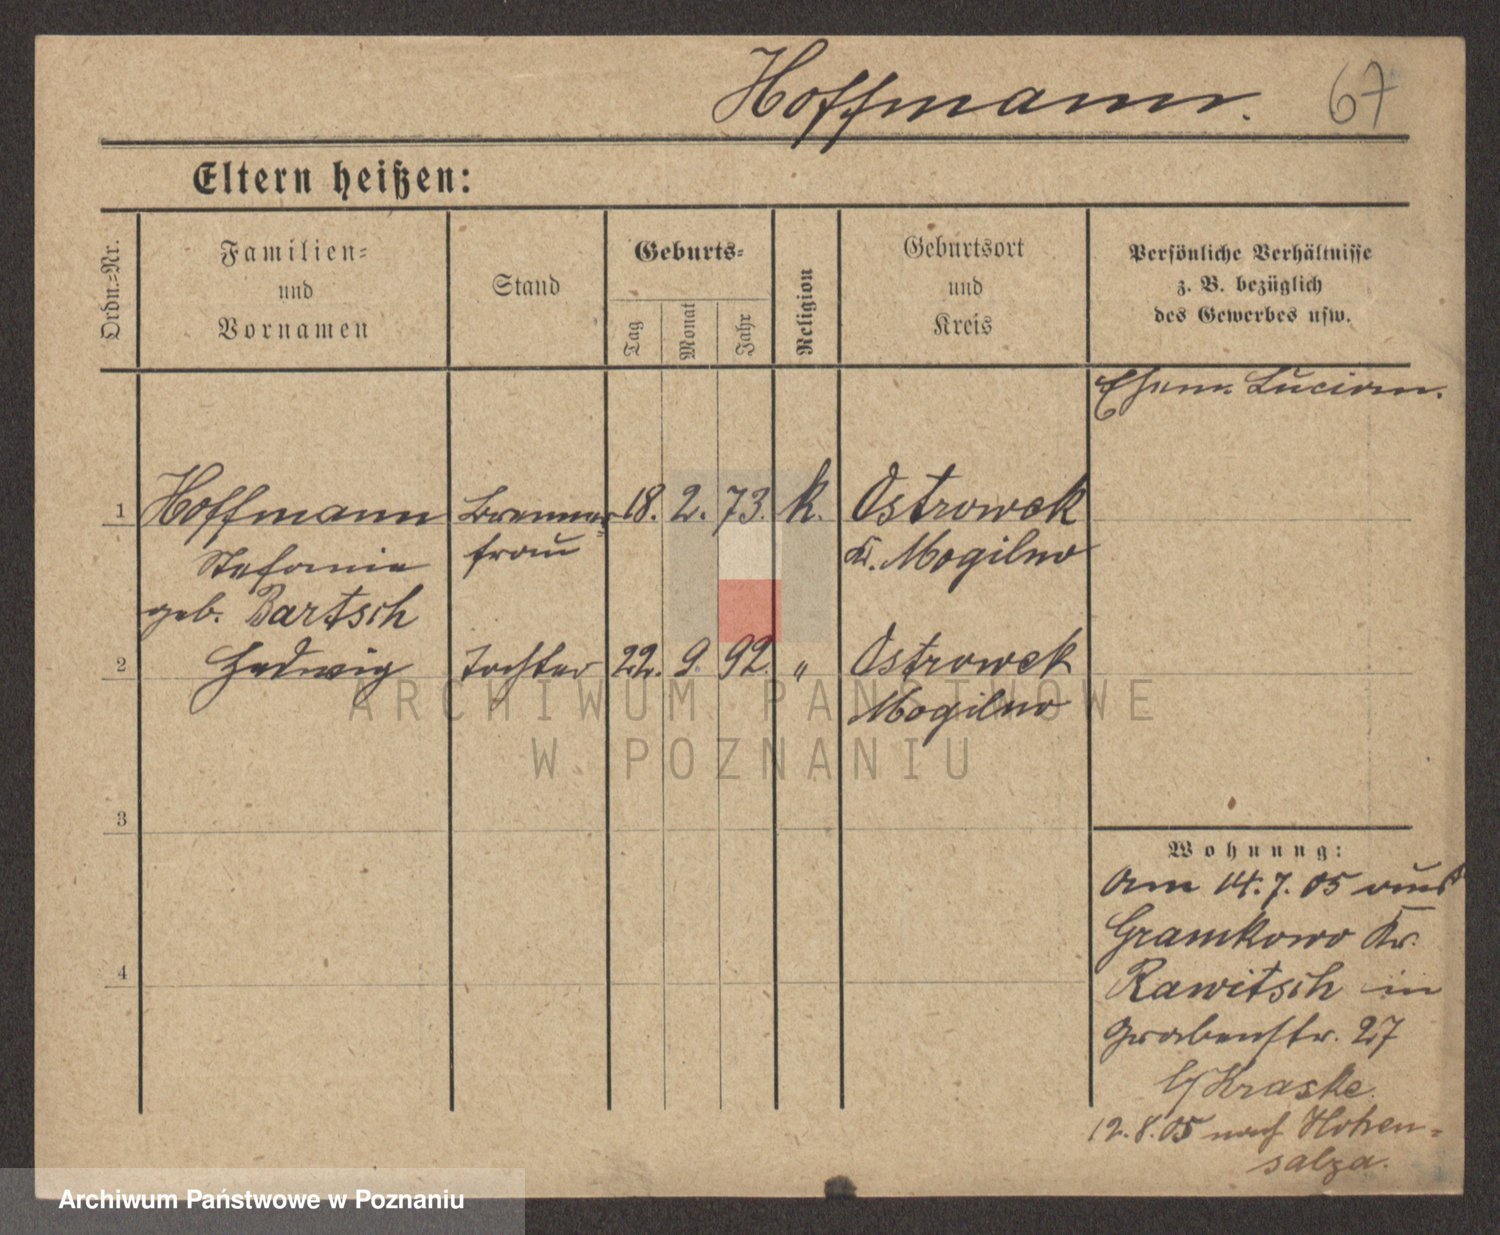 Hoffmann. 67
Eltern heißen:
Ordn.=Nr.
Familien=
und
Vornamen
Stand
Geburts=
Tag
Monat
Jahr
Religion
Geburtsort
und
Kreis
Persönliche Verhältnisse
z. B. bezüglich
des Gewerbes usw.
Ehem. Lucian.
1 Hoffmann Brenner= 18. 2. 73. k. Ostrowek
Stefanie frau Kr. Mogilno
geb. Bartsch
2 Hedwig Tochter 22. 9. 92. " Ostrowek
Mogilno
3
4
Wohnung:
Am 14.7.05 aus
Gramkowo Kr.
Rawitsch in
Grabenstr. 27
b/ Kraske
12.8.05 nach Hohen=
salza.
ARCHIWUM PAŃSTWOWE
W POZNANIU
Archiwum Państwowe w Poznaniu